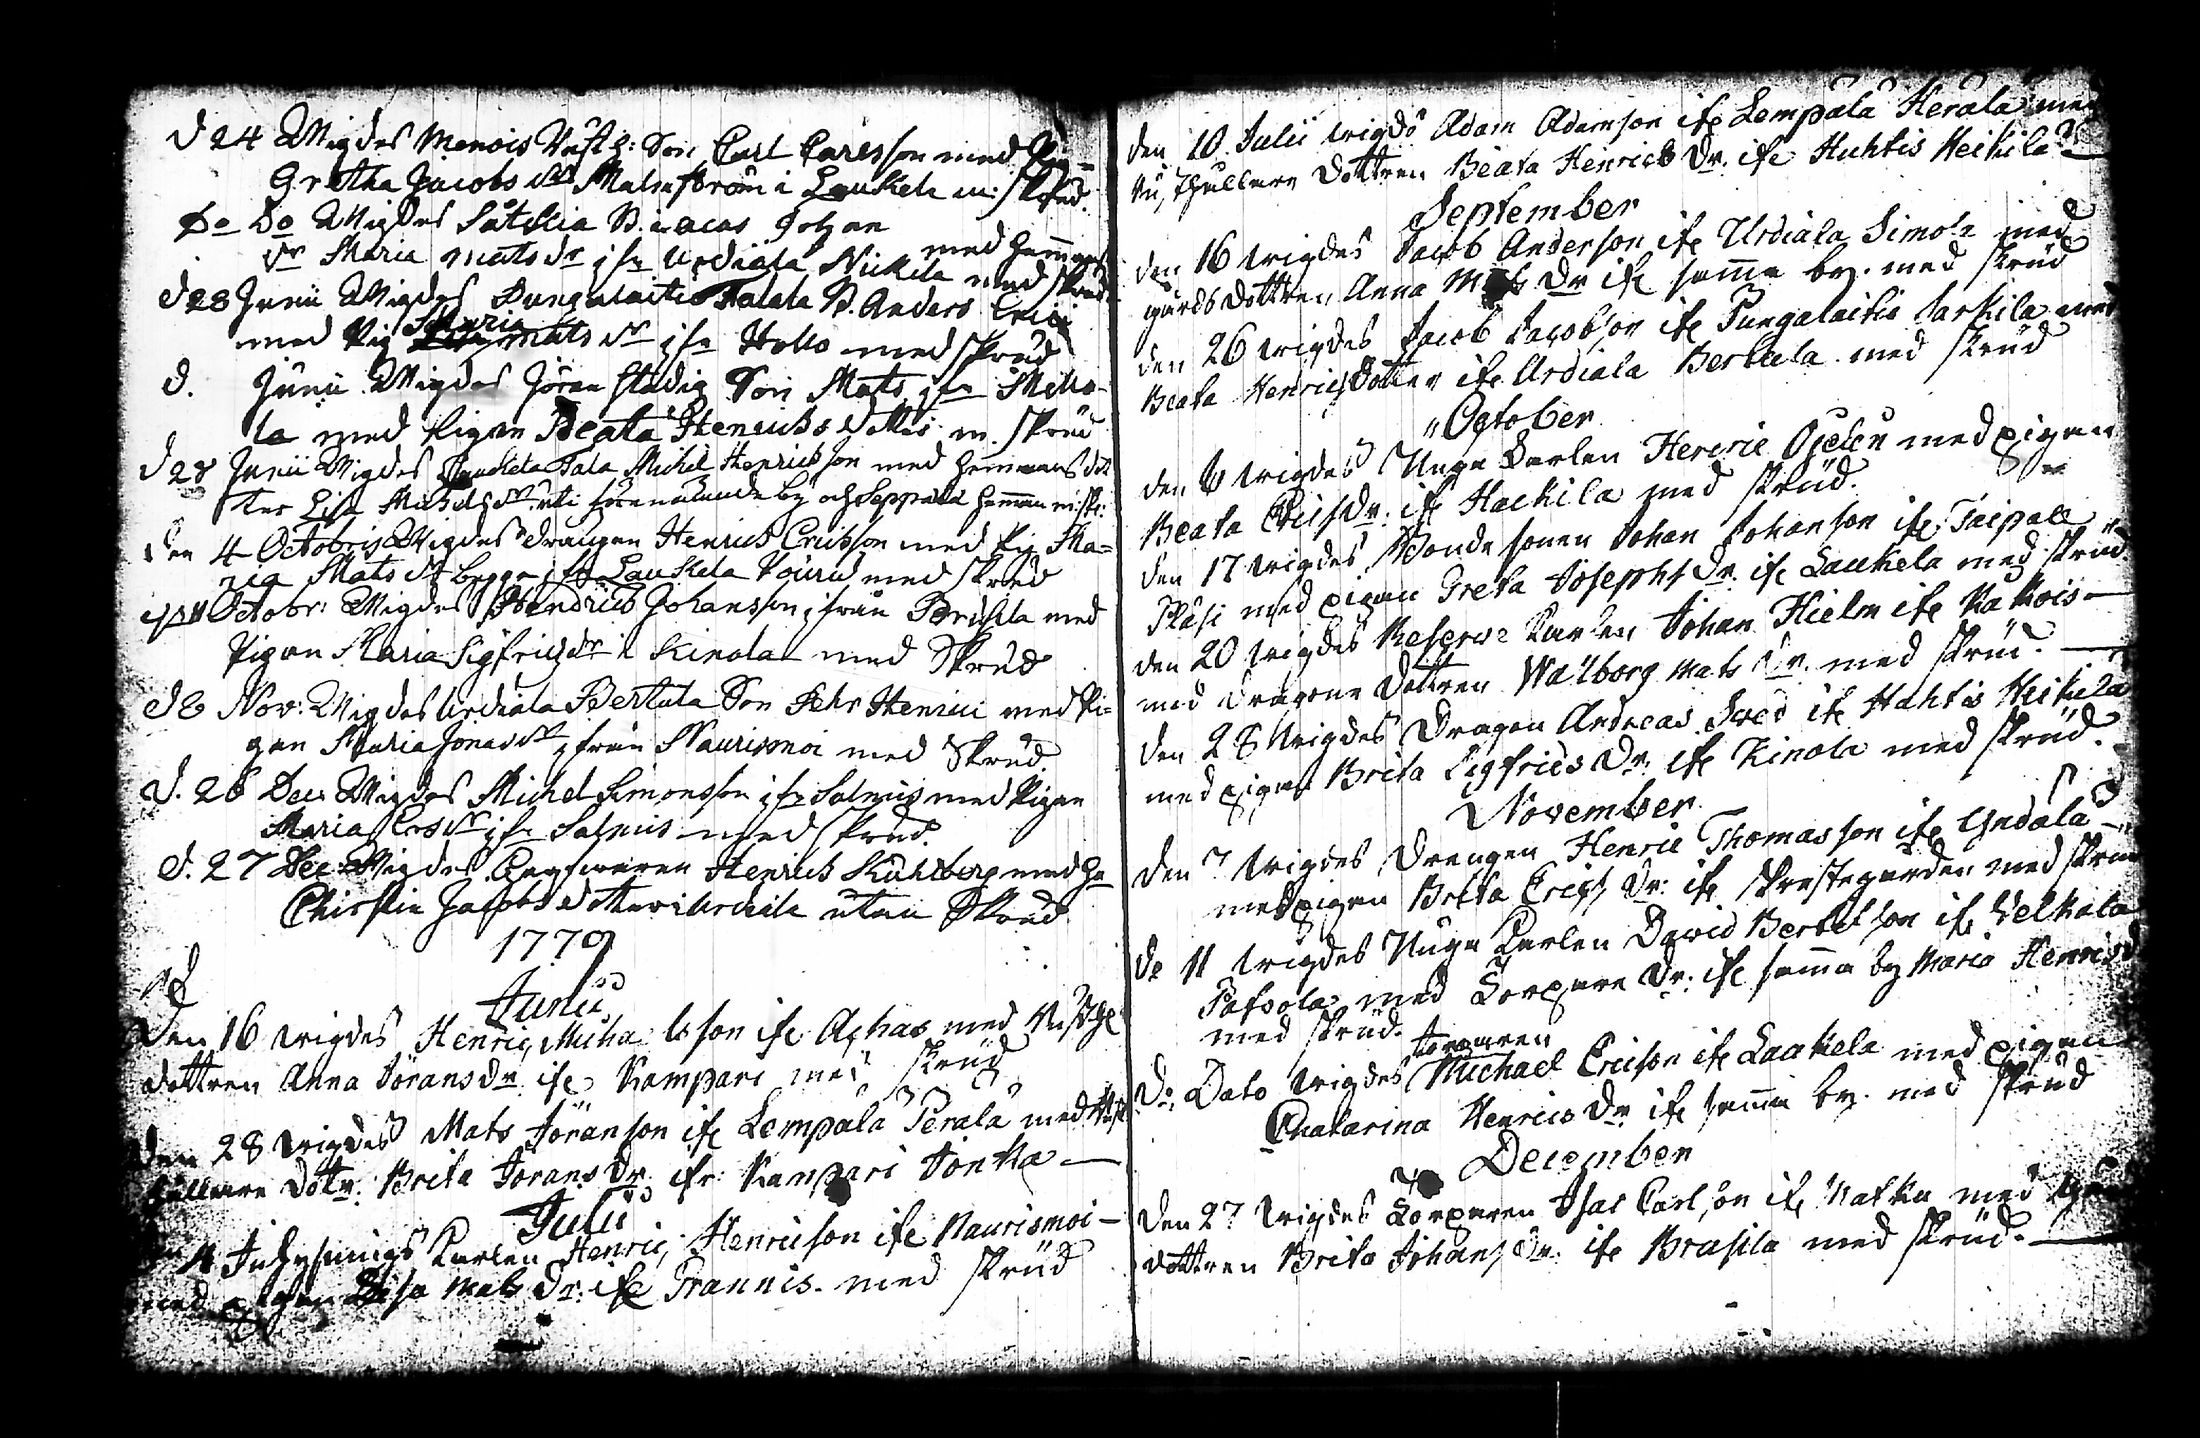 d 24 Wigdes Menois Rusth: Son Carl Carlsson med
Gretha Jacobs dr Malmström i Laukela m: Skrud.
Do Do Wigdes Sätkia B.
dr Maria Mats dr ifr Urdiala Nickela med Skrud
d 28 Junii Wigdes Pungalaitis Talala B. Anders Erici
med Pig Maria Mats dr ifr Hollo med Skrud
d. Junii Wigdes Jöran Stadig Son Mats ifr Mello-
la med Pigan Beata Henrichs dotter m. Skrud
d 28 Junii Wigdes Laukela Tala Michel Henricsson med Hemmans dot
ter Lisa Michels dr uti förenämnde by och Seppälä Hemman
den 4 Octobris Wigdes Drängen Henrich Ericsson med Pig Ma=
ria Mats dr ifr Laukela med Skrud
Octobr: Wigdes Hendrich Johansson ifrån Brusila med
Pigan Maria Sigfrids dr i Kinala med Skrud
d 8 Nov: Wigdes Urdiala Bertula Son Pehr Henrici med Pi=
gan Maria Jonæ dr ifrån Naurismoi med Skrud
d. 26 Dec: Wigdes Michel Simonsson ifr Salmis med Pigan
Maria Ers dr ifr Salmis med Skrud.
d. 27 Dec: Wigdes Henrich Kuhlberg med
Chirstin Jacobs dotter i Urdiala utan Skrud
1779
Junii
Den 16 wigdes Henric Micha lsson ifr Achas med Rusth
dottren Anna Jörans Dr ifr Kampari med skrud
Den 28 wigdes Mats Jöranson ifr Lempälä Perälä med Rust
hållare Dottr: Brita Jörans Dr ifr: Kampari Jonka —
Julii
4 Karlen Henric Henricson ifr Naurismoi —
med pigan Lisa Mats Dr: ifr Prannis. med skrud
den 10 Julii wigds Adam Adamson ifr Lempälä Heralä med
Rusthållare Dottren Beata Henrics Dr. ifr Huhtis Heikilä —
September
den 16 wigdes Jacob Anderson ifr Urdiala Simola med
gårds Dottren Anna Mats Dr ifr samma by. med skrud
den 26 wigdes Jacob Jacobson ifr Pungalaitis Sarkila med
Beata Henrics Dotter ifr Urdiala Bertula med skrud
October
den 6 wigdes Unga Karlen Henric Ojelen med pigan
Beata Erics Dr: ifr Hackila med skrud.
den 17 wigdes Bonde sonen Johan Johanson ifr Taipale
Pläsi med pigan Greta Josephs Dr. ifr Laukela med skrud
den 20 wigdes Reserve Karlen Johan Hielm ifr Kakois —
med Dragone Dottren Walborg Mats Dr. med skrud. —
den 28 wigdes Dragon Andreas Swed ifr Huhtis Heikilä
med pigan Brita Sigfrids Dr: ifr Kinala med skrud.
November
den 7 wigdes Drengen Henric Thomasson ifr Yndälä —
med pigan Brita Erics Dr: ifr Prestegården med skrud
de 11 wigdes Unga Karlen David Bertelson ifr Velkala
Pafsola med Torpare Dr: ifr samma by Maria Henrics d
med skrud.
Do Dato wigdes torparen Michael Ericson ifr Laukela med pigan
Chatarina Henrics Dr ifr samma by. med skrud
December
Den 27 wigdes Torparen Isac Carlson ifr Natku med
dottren Brita Johans Dr: ifr Brasila med skrud. —